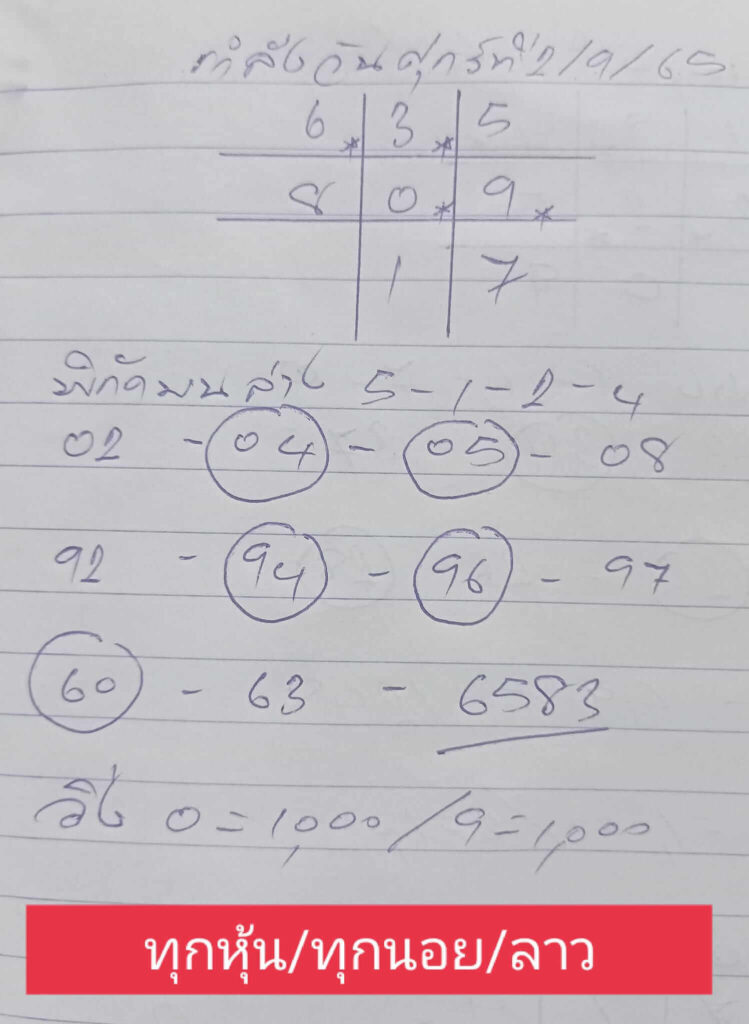 กำลังวันศุกร์ที่ 2/9/65
6 * 3 * 5
8 0 * 9 *
1 7
พิกัดบนล่าง 5-1-2-4
02 - 04 - 05 - 08
92 - 94 - 96 - 97
60 - 63 - 6583
วิ่ง 0=1,000/9=1,000
ทุกหุ้น/ทุกนอย/ลาว